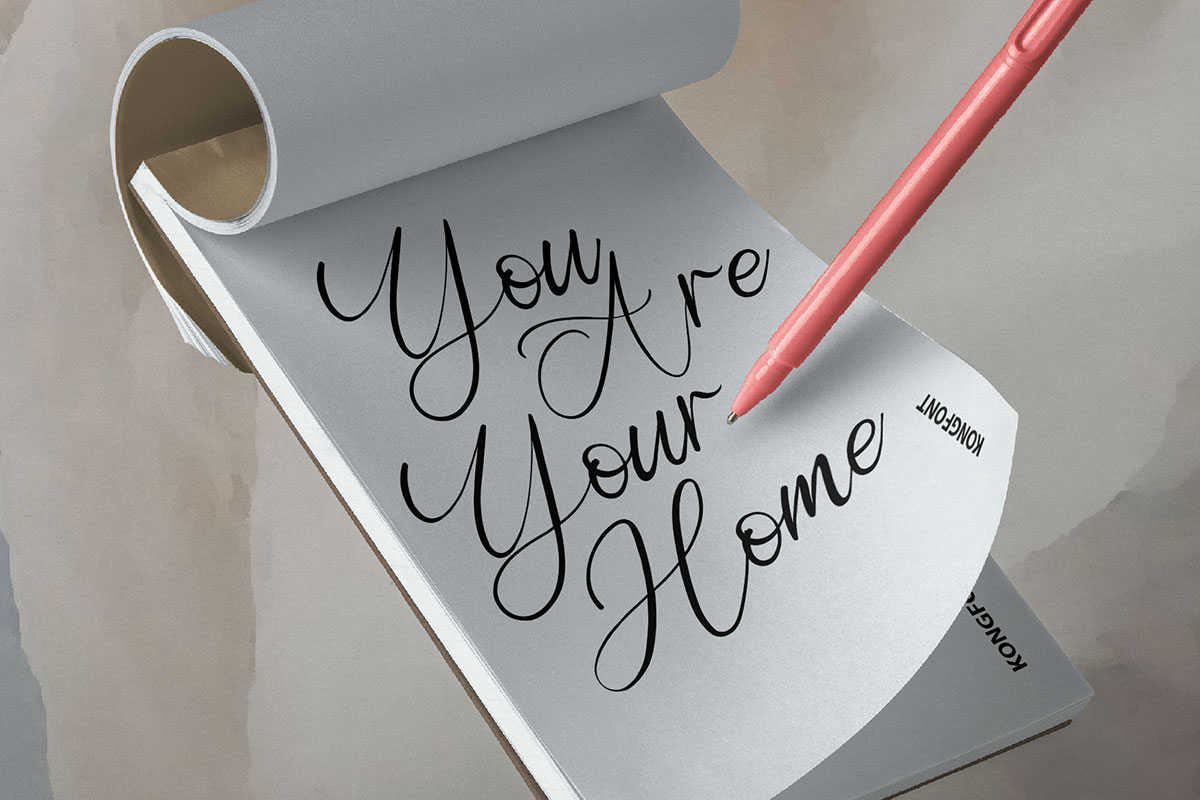 You Are
Your
Home
KONGFONT
KONGFO